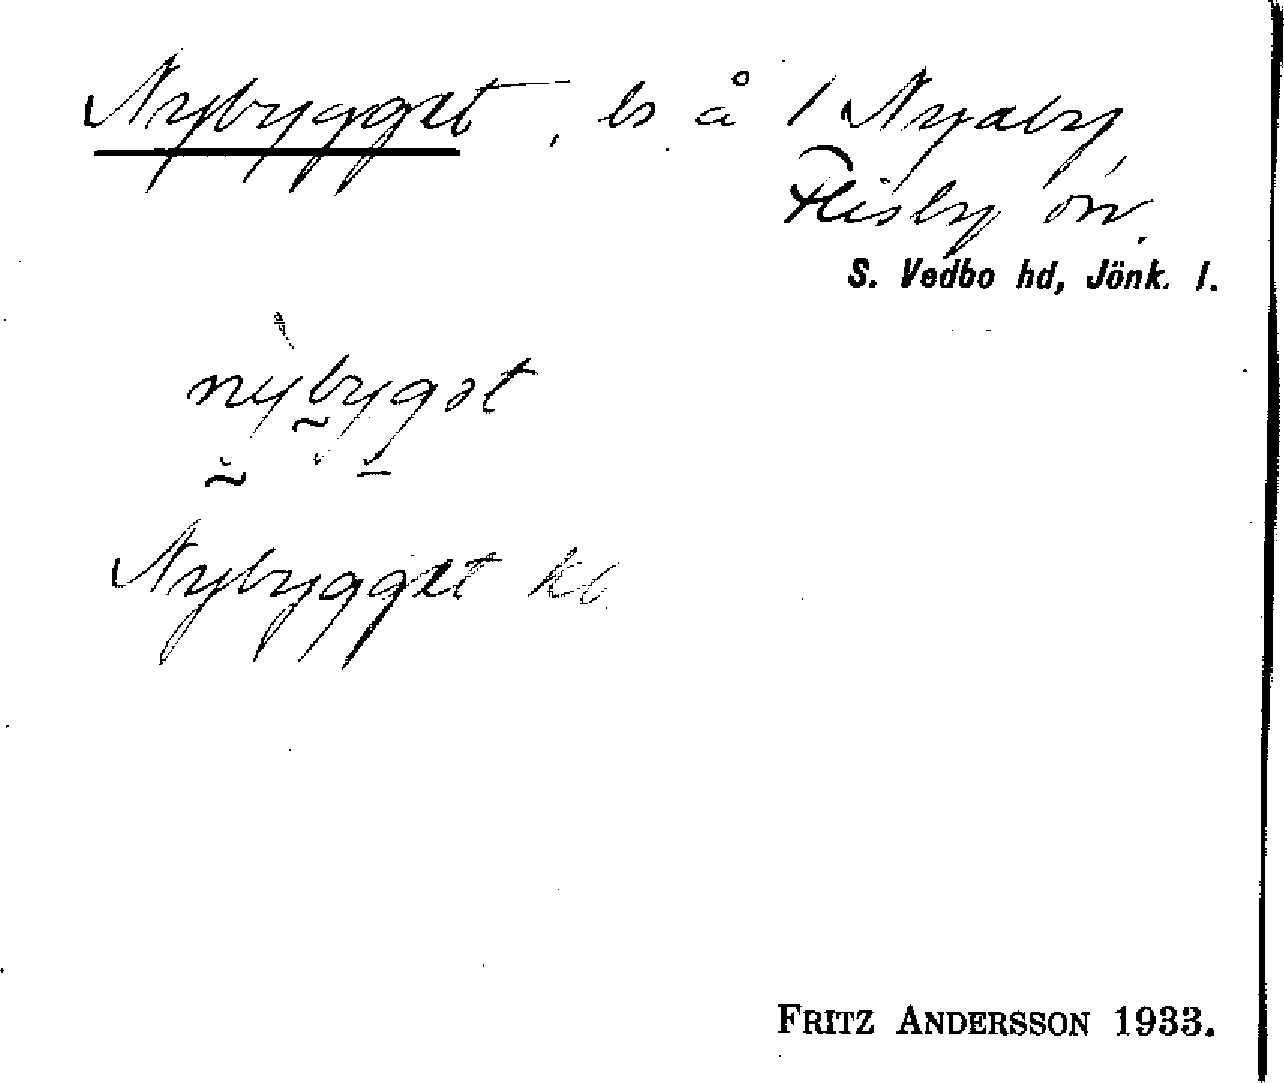 Nybygget, ls å 1 Nyaby,
Flisby sn.
S. Vedbo hd, Jönk. l.
nybygət
Nybygget kb.
FRITZ ANDERSSON 1933.